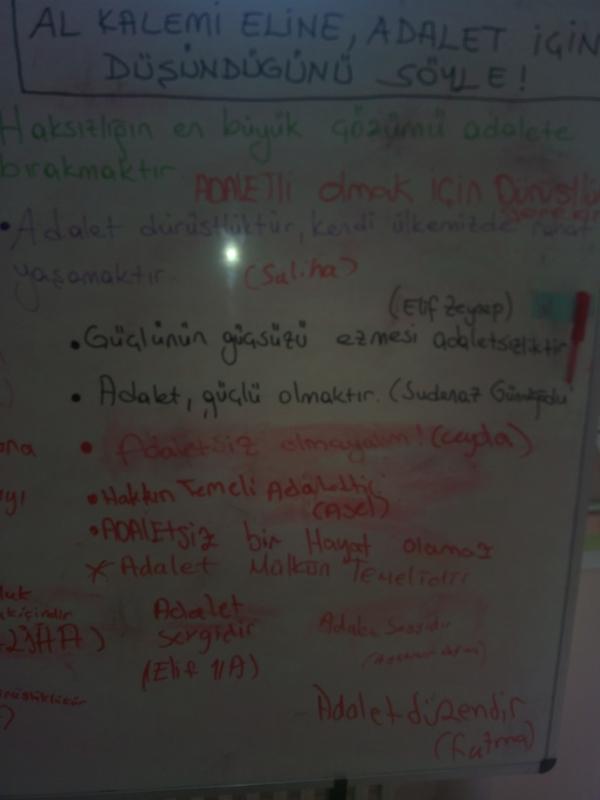 AL KALEMİ ELİNE, ADALET İÇİN
DÜŞÜNDÜĞÜNÜ SÖYLE!
Haksızlığın en büyük çözümü adalete
bırakmaktır
ADALETli olmak için Dürüstlü
gerekir
• Adalet dürüstlüktür, kendi ülkemizde rahat
yaşamaktır. (Saliha)
(Elif Zeynep)
• Güçlünün güçsüzü ezmesi adaletsizliktir
• Adalet, güçlü olmaktır. (Sudenaz
• Adaletsiz olmayalım! (Ceyda)
• Hakkın Temeli Adalettir
(Asel)
• ADALETsiz bir Hayat olamaz
x Adalet Mülkün Temelidir
Adalet
sevgidir
(Elif 11A)
Adalet düzendir
(Fatma)